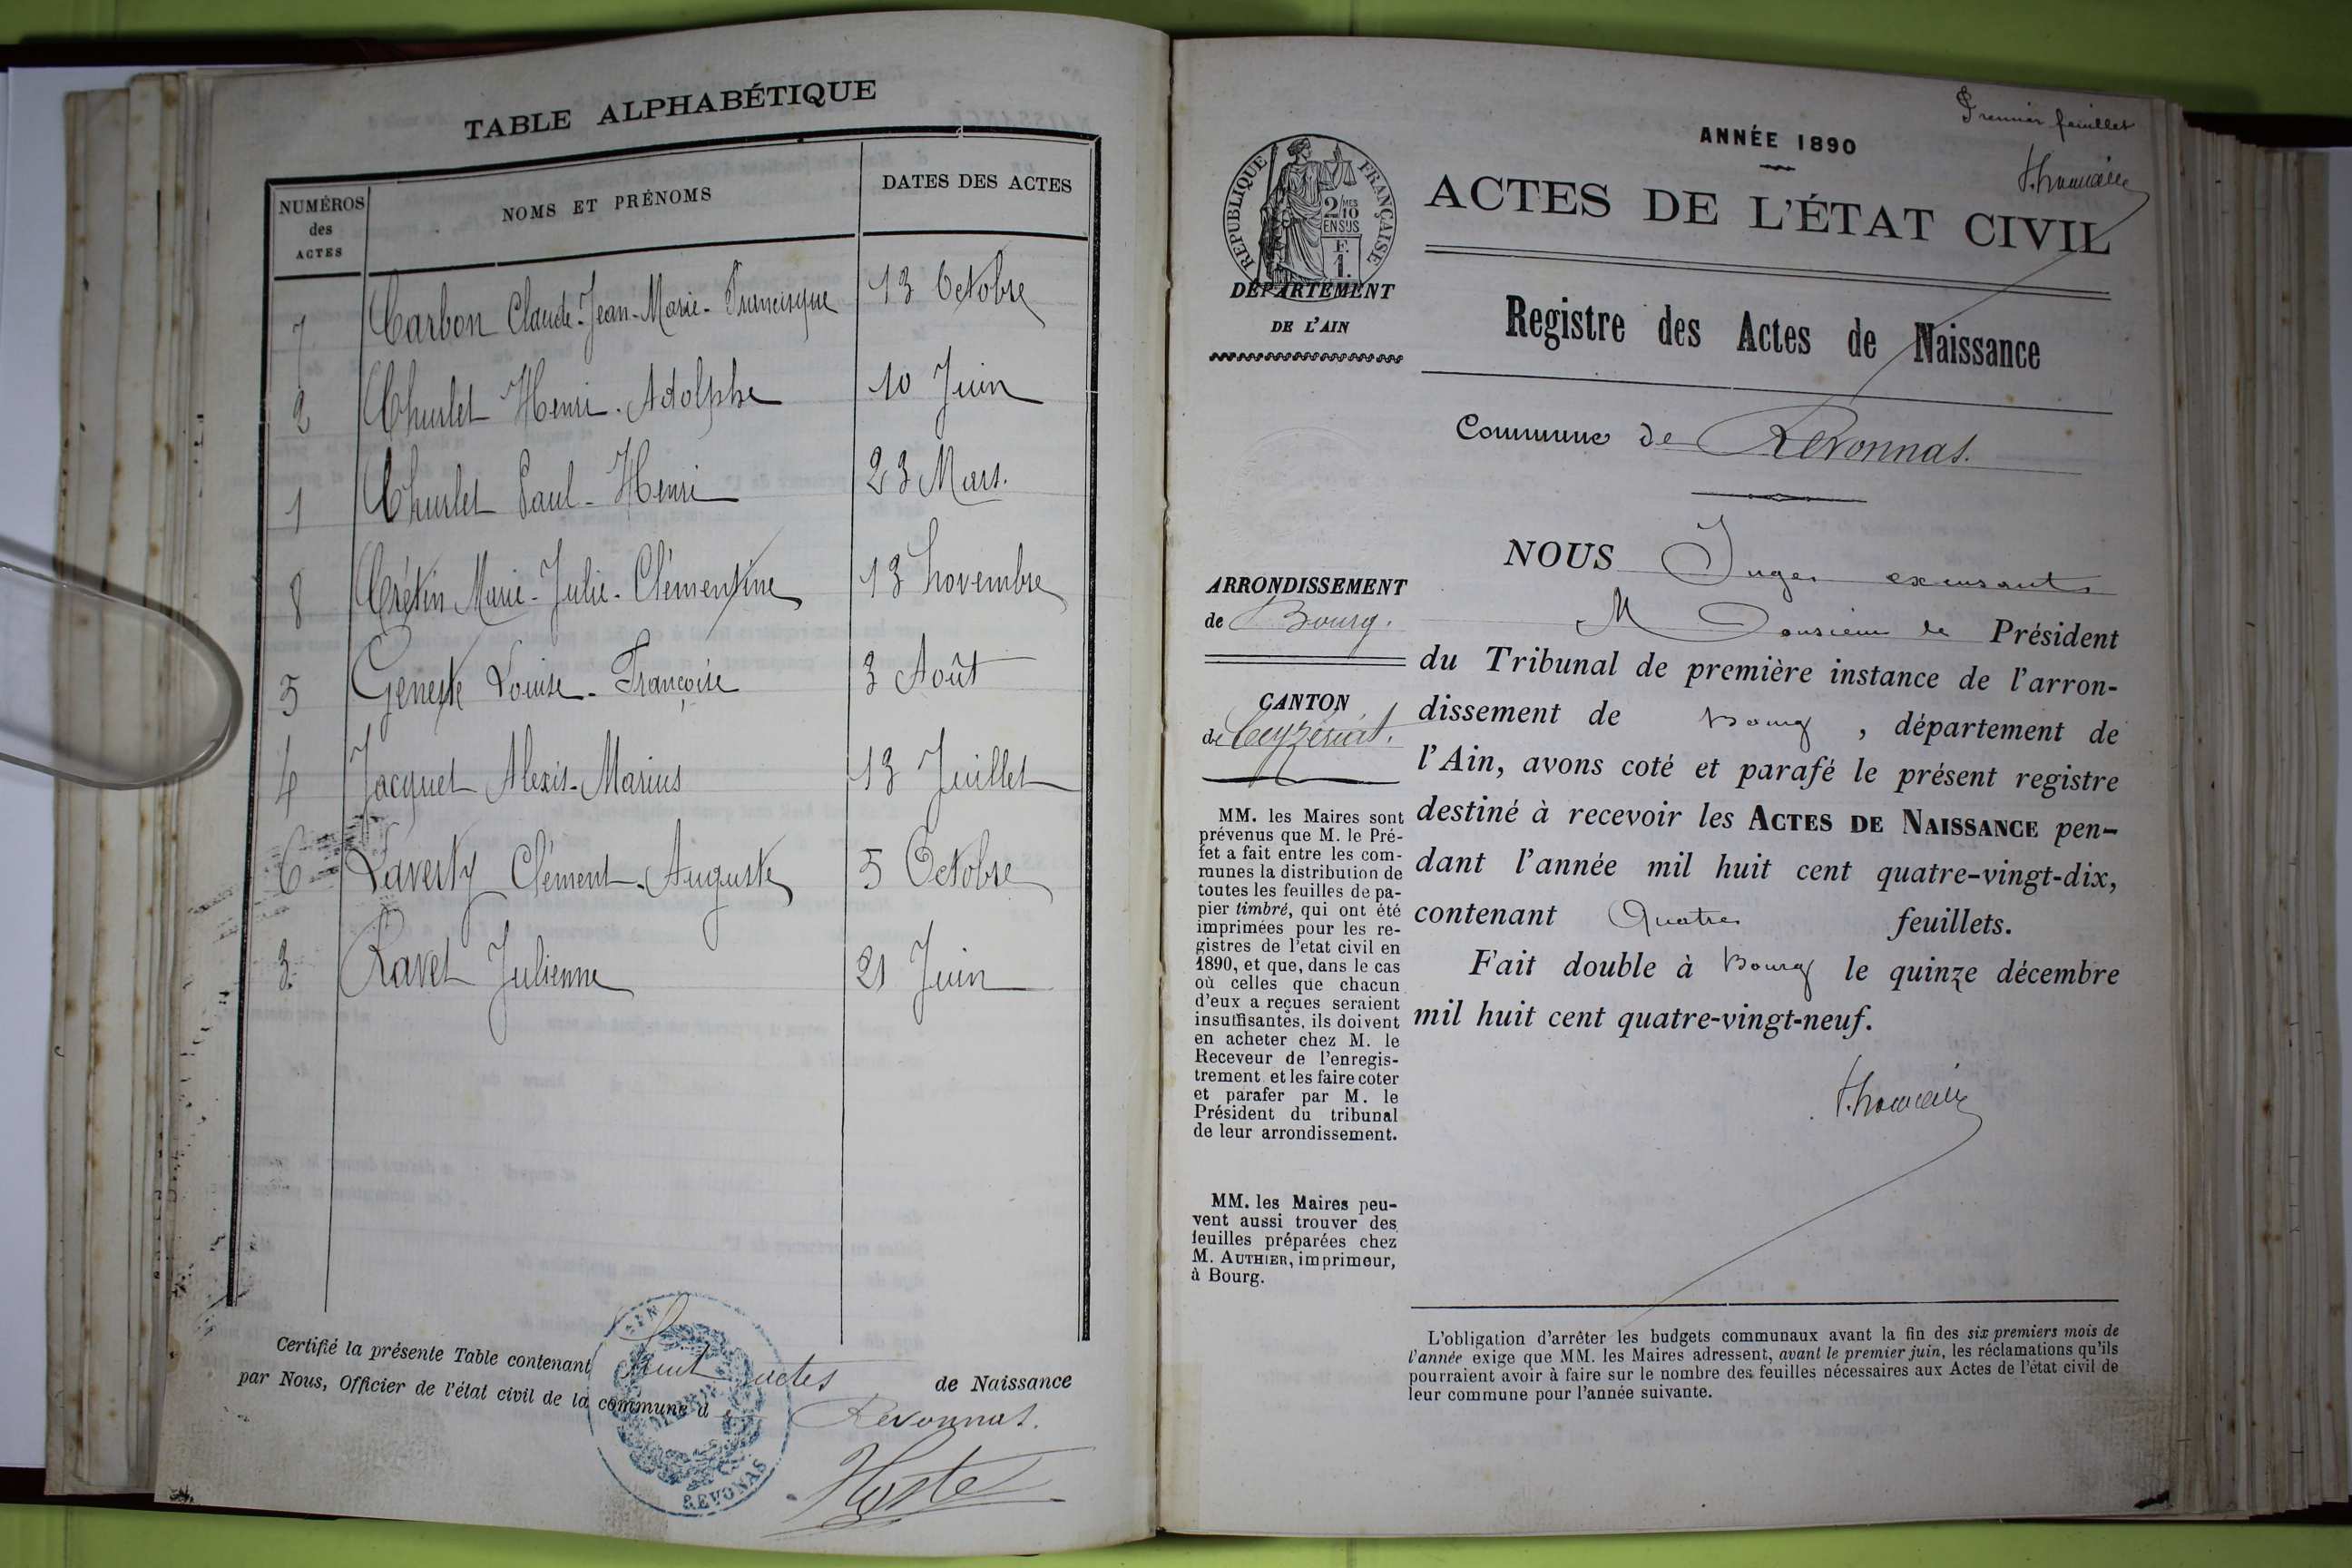 TABLE ALPHABÉTIQUE
NUMÉROS des ACTES
NOMS ET PRÉNOMS
DATES DES ACTES
7 Carbon Claude-Jean-Marie-Francisque 13 Octobre
2 Churlet Henri-Adolphe 10 Juin
1 Churlet Paul-Henri 23 Mars.
8 Crétin Marie-Julie-Clémentine 13 Novembre
5 Geneste Louise-Françoise 3 Août
4 Jacquet Alexis-Marius 13 Juillet
6 Laverty Clément-Auguste 5 Octobre
3 Ravet Julienne 21 Juin
Certifié la présente Table contenant huit actes de Naissance
par Nous, Officier de l'état civil de la commune de Revonnas.
AIN
MAIRIE
REVONAS
Premier feuillet
ANNÉE 1890
ACTES DE L'ÉTAT CIVIL
RÉPUBLIQUE FRANÇAISE
2/10
MES
EN SUS
F.
1.
DÉPARTEMENT
DE L'AIN
Registre des Actes de Naissance
Commune de Revonnas.
ARRONDISSEMENT
de Bourg.
CANTON
de Ceyzériat.
MM. les Maires sont
prévenus que M. le Pré-
fet a fait entre les com-
munes la distribution de
toutes les feuilles de pa-
pier timbré, qui ont été
imprimées pour les re-
gistres de l'etat civil en
1890, et que, dans le cas
où celles que chacun
d'eux a reçues seraient
insuffisantes, ils doivent
en acheter chez M. le
Receveur de l'enregis-
trement et les faire coter
et parafer par M. le
Président du tribunal
de leur arrondissement.
MM. les Maires peu-
vent aussi trouver des
feuilles préparées chez
M. AUTHIER, imprimeur,
à Bourg.
NOUS Juge
Monsieur le Président
du Tribunal de première instance de l'arron-
dissement de Bourg, département de
l'Ain, avons coté et parafé le présent registre
destiné à recevoir les ACTES DE NAISSANCE pen-
dant l'année mil huit cent quatre-vingt-dix,
contenant Quatre feuillets.
Fait double à Bourg le quinze décembre
mil huit cent quatre-vingt-neuf.
L'obligation d'arrêter les budgets communaux avant la fin des six premiers mois de
l'année exige que MM. les Maires adressent, avant le premier juin, les réclamations qu'ils
pourraient avoir à faire sur le nombre des feuilles nécessaires aux Actes de l'état civil de
leur commune pour l'année suivante.